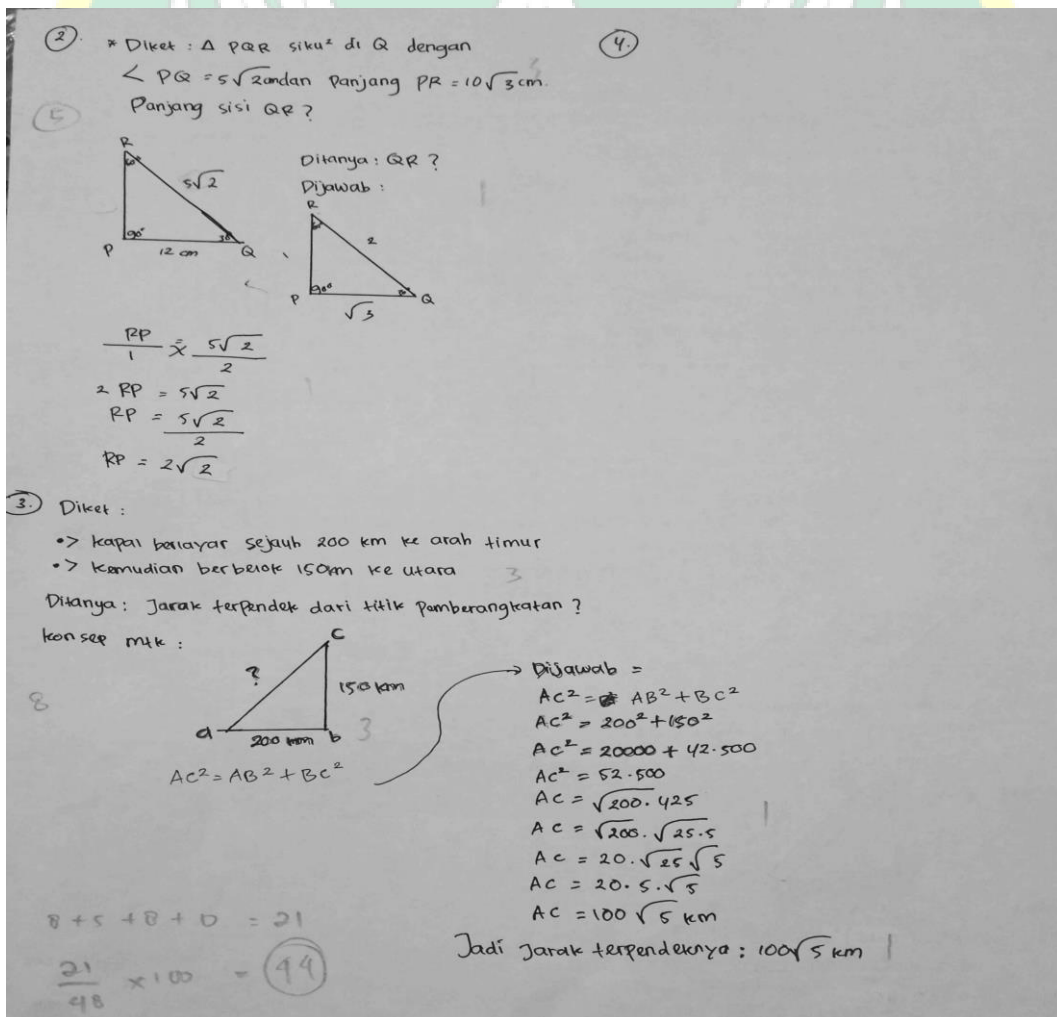 2.
* Diket : Δ PQR siku² di Q dengan
< PQ = 5√2 cm dan Panjang PR = 10√3 cm.
Panjang sisi QR ?
5
R
5√2
90°
P
12 cm
Q
Ditanya : QR ?
Dijawab :
1
R
2
90°
P
√3
Q
RP/1 = 5√2/2
2 RP = 5√2
RP = 5√2/2
RP = 2√2
3.
Diket :
•> Kapal berlayar sejauh 200 km ke arah timur
•> Kemudian berbelok 150km ke utara
3
Ditanya : Jarak terpendek dari titik Pemberangkatan ?
Konsep mtk :
8
C
?
150 km
a
200 km
b
3
AC² = AB² + BC²
Dijawab =
AC² = AB² + BC²
AC² = 200² + 150²
AC² = 20000 + 42.500
AC² = 52.500
AC = √200. 425
AC = √200. √25.5
AC = 20. √25 √5
AC = 20. 5. √5
AC = 100 √5 km
1
Jadi Jarak terpendeknya : 100√5 km
1
8 + 5 + 8 + 0 = 21
21/48 × 100 = 44
4.